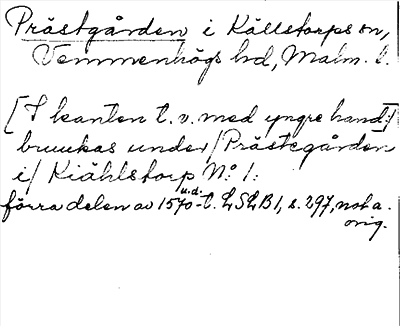 Prästgården i Källstorps sn,
Vemmenhögs hd, Malm. l.
[I kanten t. v. med yngre hand:]
bruukas under/Prästegården
i/ Kiählstorp No 1:
förra delen av 1570-t. LSLB 1, s. 297, not a.
u.d.
orig.